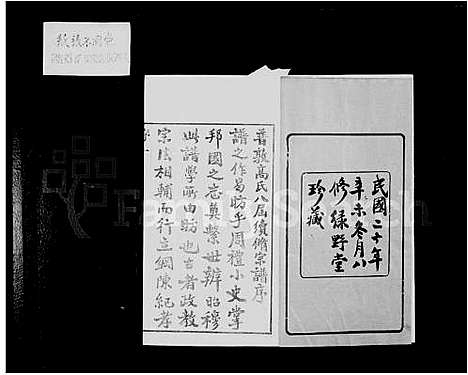 民國二十年
辛未冬月八
修綠野堂
珍藏
普敦高氏八屆續脩宗譜序
譜之作昜昉乎周禮小史掌
邦國之志奠繫世辨昭穆
此譜學所由昉也古者政教
宗法相輔而行立綱陳紀孝